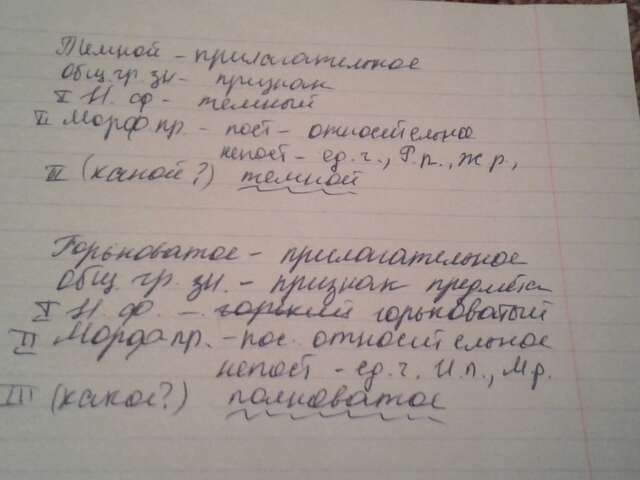 Темной - прилагательное
общ. гр. зн. - признак
I Н. ф - темный
II Морф пр. - пост - относительное
непост - ед. ч., Р.п., ж.р.,
III (какой?) темной
Горьковатое - прилагательное
общ. гр. зн. - признак предмета
I Н. ф. - горький горьковатый
II Морфо пр. - пос. относительное
непост - ед. ч. И п., М р.
III (какое?) полноватое